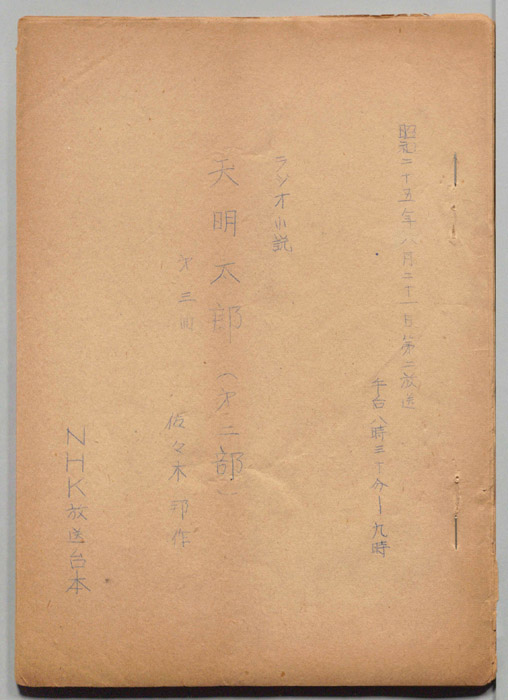 昭和二十五年八月二十一日第二放送
午后八時三十分ー九時
ラジオ小説
天明太郎(才二部)
才三回
佐々木邦作
NHK放送台本